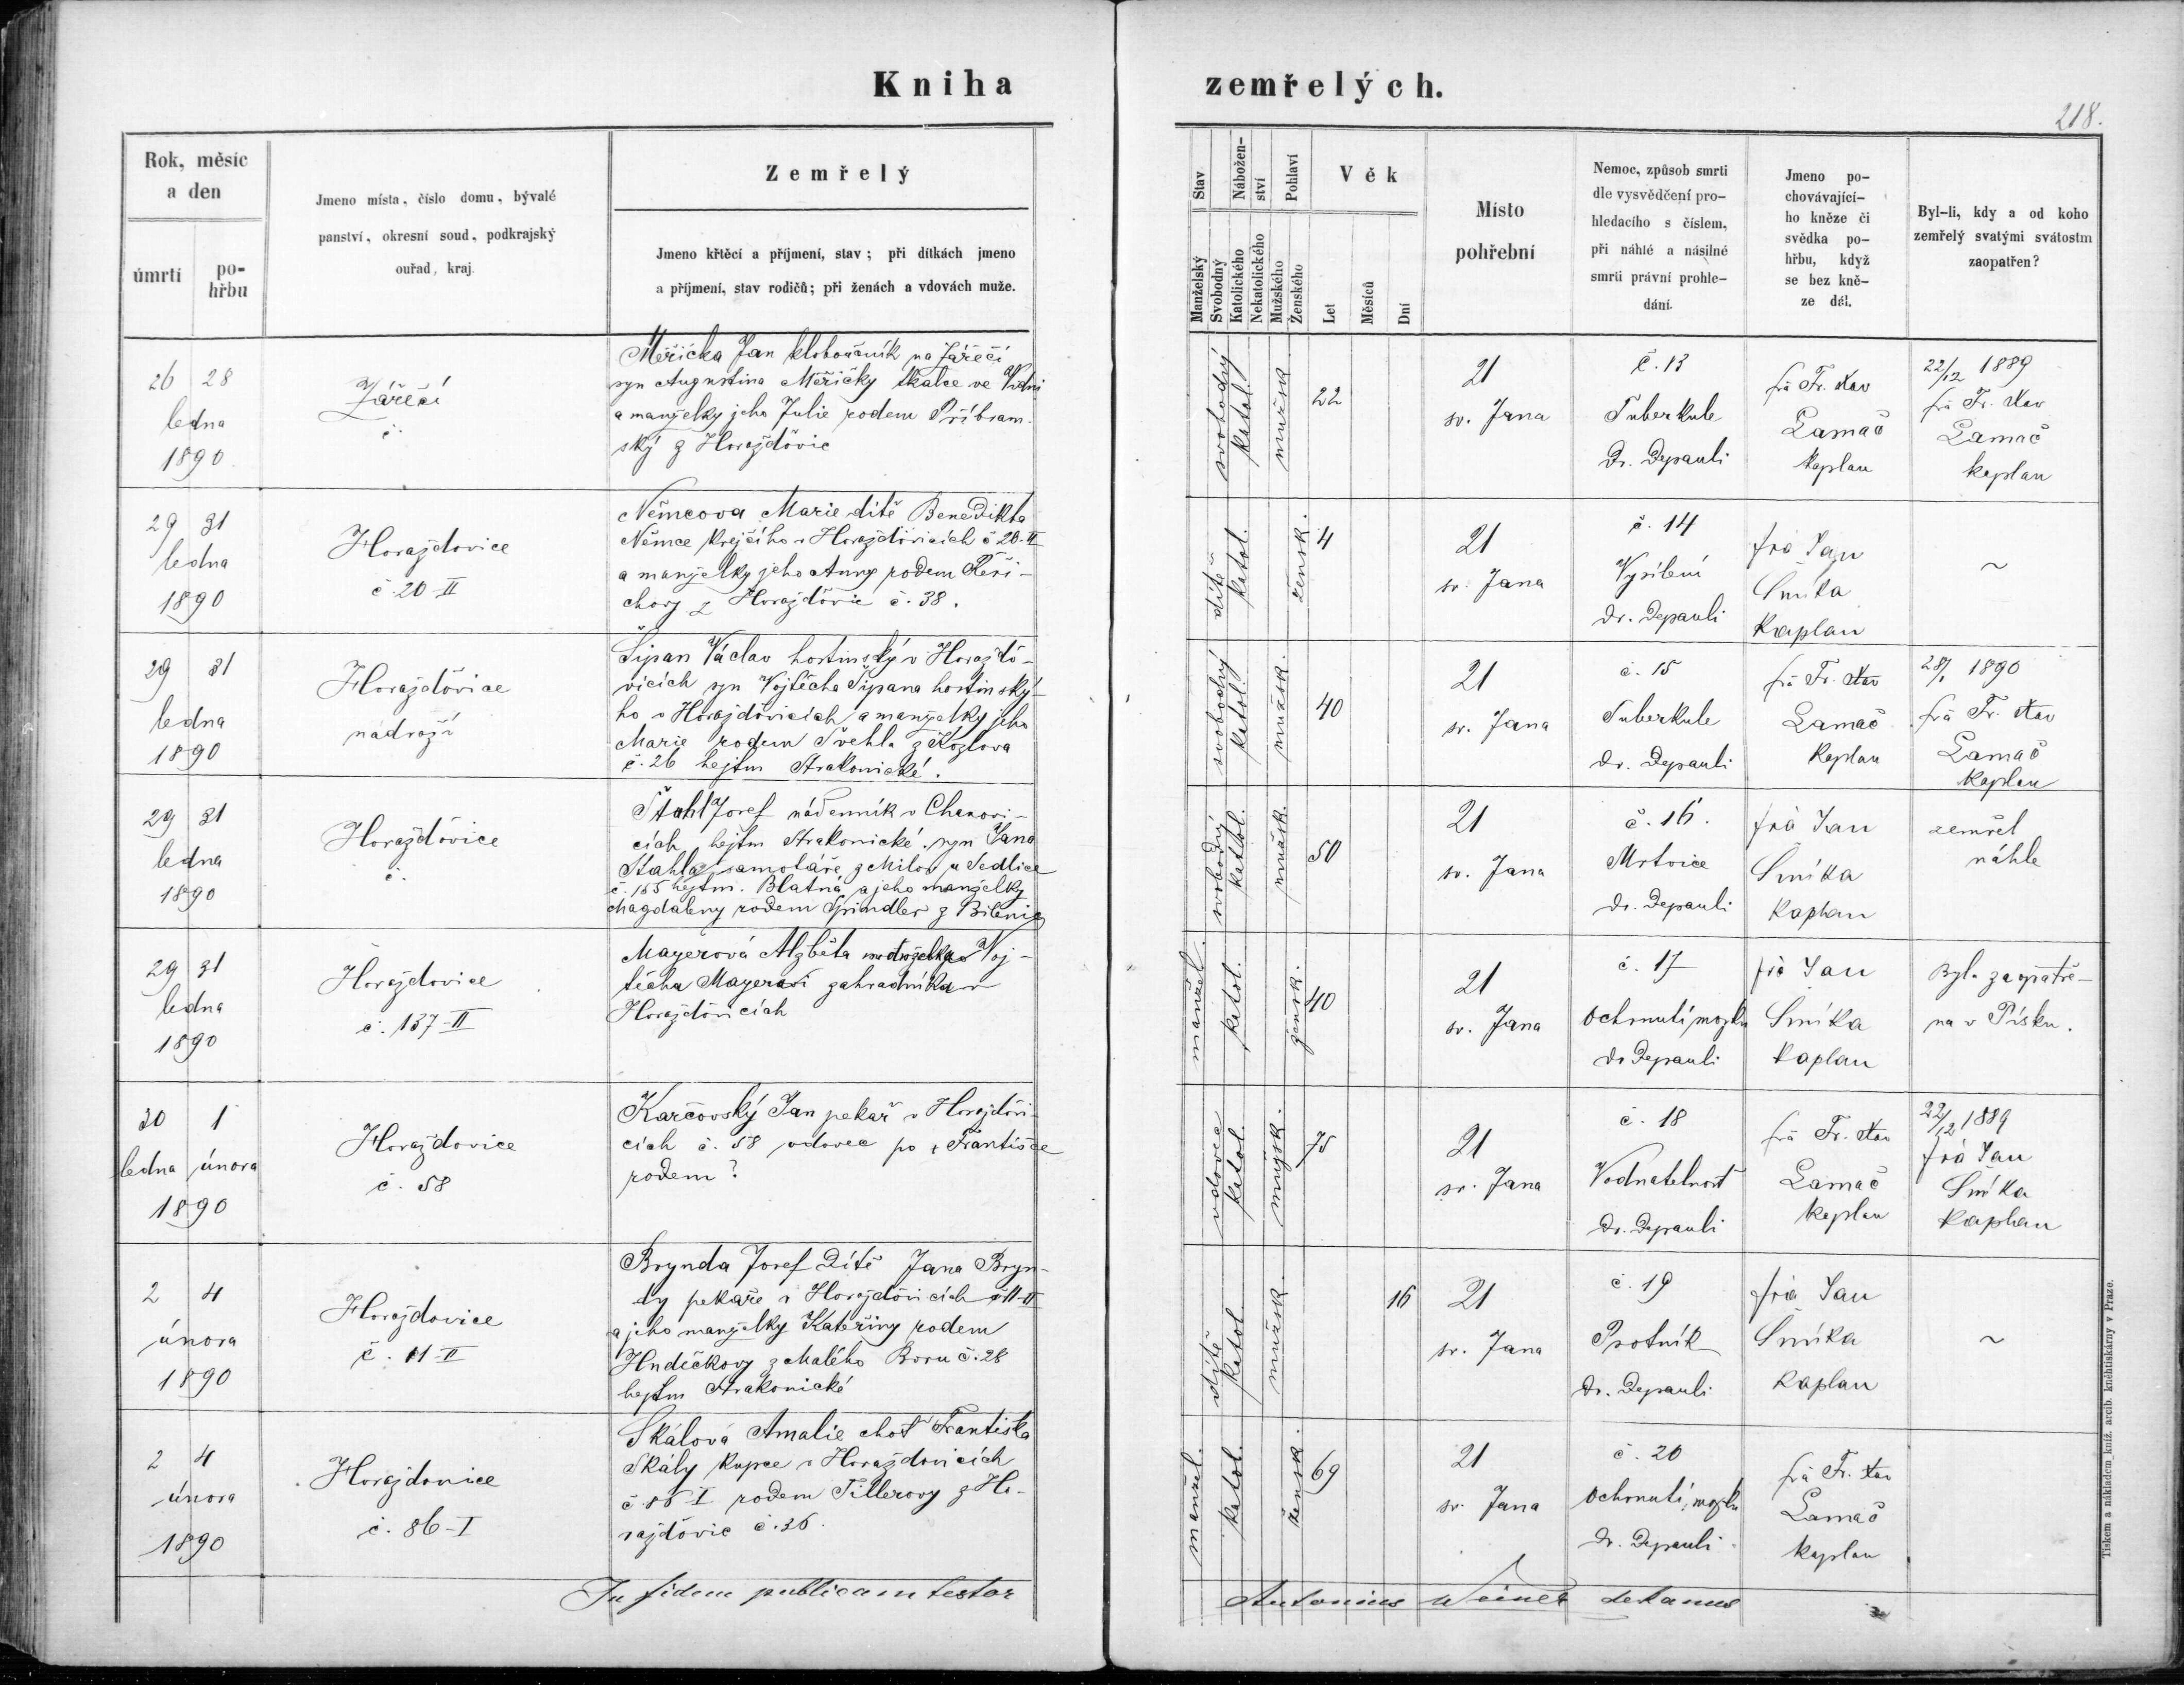 Kniha zemřelých.
218.
Rok, měsíc
a den
úmrtí
po-
hřbu
Jmeno místa, číslo domu, bývalé
panství, okresní soud, podkrajský
ouřad, kraj.
Zemřelý
Jmeno křtěcí a příjmení, stav; při dítkách jmeno
a příjmení, stav rodičů; při ženách a vdovách muže.
Stav
Manželský
Svobodný
Nábožen-
ství
Katolického
Nekatolického
Pohlaví
Mužského
Ženského
Věk
Let
Měsíců
Dní
Místo
pohřební
Nemoc, způsob smrti
dle vysvědčení pro-
hledacího s číslem,
při náhlé a násilné
smrti právní prohle-
dání.
Jmeno po-
chovávající-
ho kněze či
svědka po-
hřbu, když
se bez kně-
ze dál.
Byl-li, kdy a od koho
zemřelý svatými svátostm
zaopatřen?
26 28
ledna
1890
Zářečí
č.
Měřička Jan kloboučník na Zářečí
syn Augustina Měřičky tkalce ve
a manželky jeho Julie rodem Příbram-
ský z Horažďovic
svobodný
katol.
mužsk.
22
21
sv. Jana
č. 13
Tuberkule
Dr. Depauli
Fr. Xav
Lamač
kaplan
22/12 1889
Fr. Xav
Lamač
kaplan
29 31
ledna
1890
Horažďovice
č. 20-II
Němcova Marie dítě Benedikta
Němce krejčího v Horažďovicích č 20-II
a manželky jeho Anny rodem Řeři-
chovy z Horažďovic č. 38.
dítě
katol.
žensk.
4
21
sv. Jana
č. 14
Vysílení
dr. Depauli
Jan
Smíka
kaplan
~
29 31
ledna
1890
Horažďovice
nádraží
Šipan Václav hostinský v Horažďo-
vicích syn Vojtěcha Šipana hostinský-
ho v Horažďovicích a manželky jeho
Marie rodem Švehla z Kozlova
č. 26 hejtm Strakonické.
svobodný
katol.
mužsk.
40
21
sv. Jana
č. 15
Tuberkule
dr. Depauli
Fr. Xav
Lamač
kaplan
28/1 1890
Fr. Xav
Lamač
kaplan
29 31
ledna
1890
Horažďovice
č.
Štahl Josef nádenník v Chanovi-
cích hejtm Strakonické. syn Jana
Štahla, samotáře, z u Sedlice
č. 165 hejtm. Blatná a jeho manželky
Magdaleny rodem Špindler z
svobodný
katol.
mužsk.
50
21
sv. Jana
č. 16.
Mrtvice
dr. Depauli
Jan
Smíka
kaplan
zemřel
náhle
29 31
ledna
1890
Horažďovice
č. 137-II
Mayerová Alžběta manželka Voj-
těcha Mayera zahradníka v
Horažďovicích
manžel.
katol.
žensk.
40
21
sv. Jana
č. 17
Ochrnutí mozku
dr Depauli
Jan
Smíka
kaplan
Byla zaopatře-
na v Písku.
30 1
ledna února
1890
Horažďovice
č. 58
Karčovský Jan pekař v Horažďovi-
cích č. 58 vdovec po † Františce
rodem?
vdovec
katol.
mužsk.
75
21
sv. Jana
č. 18
Vodnatelnost
dr. Depauli
Fr. Xav
Lamač
kaplan
22/12 1889
Jan
Smíka
kaplan
2 4
února
1890
Horažďovice
č. 11-II
Brynda Josef dítě Jana Bryn-
dy pekaře v Horažďovicích č 11-II
a jeho manželky Kateřiny rodem
Hudečkovy z Malého Boru č. 28
hejtm Strakonické
dítě
katol
mužsk.
16
21
sv. Jana
č. 19
Psotník
dr. Depauli
Jan
Smíka
kaplan
~
2 4
února
1890
Horažďovice
č. 86-I
Skálová Amalie choť Františka
Skály kupce v Horažďovicích
č. 86-I rodem Tillerovy z Ho-
ražďovic č. 36.
manžel.
katol.
žensk.
69
21
sv. Jana
č. 20
Ochrnutí mozku
dr. Depauli
Fr. Xav
Lamač
kaplan
In fidem publicam testor
Antonius děkanus
Tiskem a nákladem kníž. arcib. knihtiskárny v Praze.